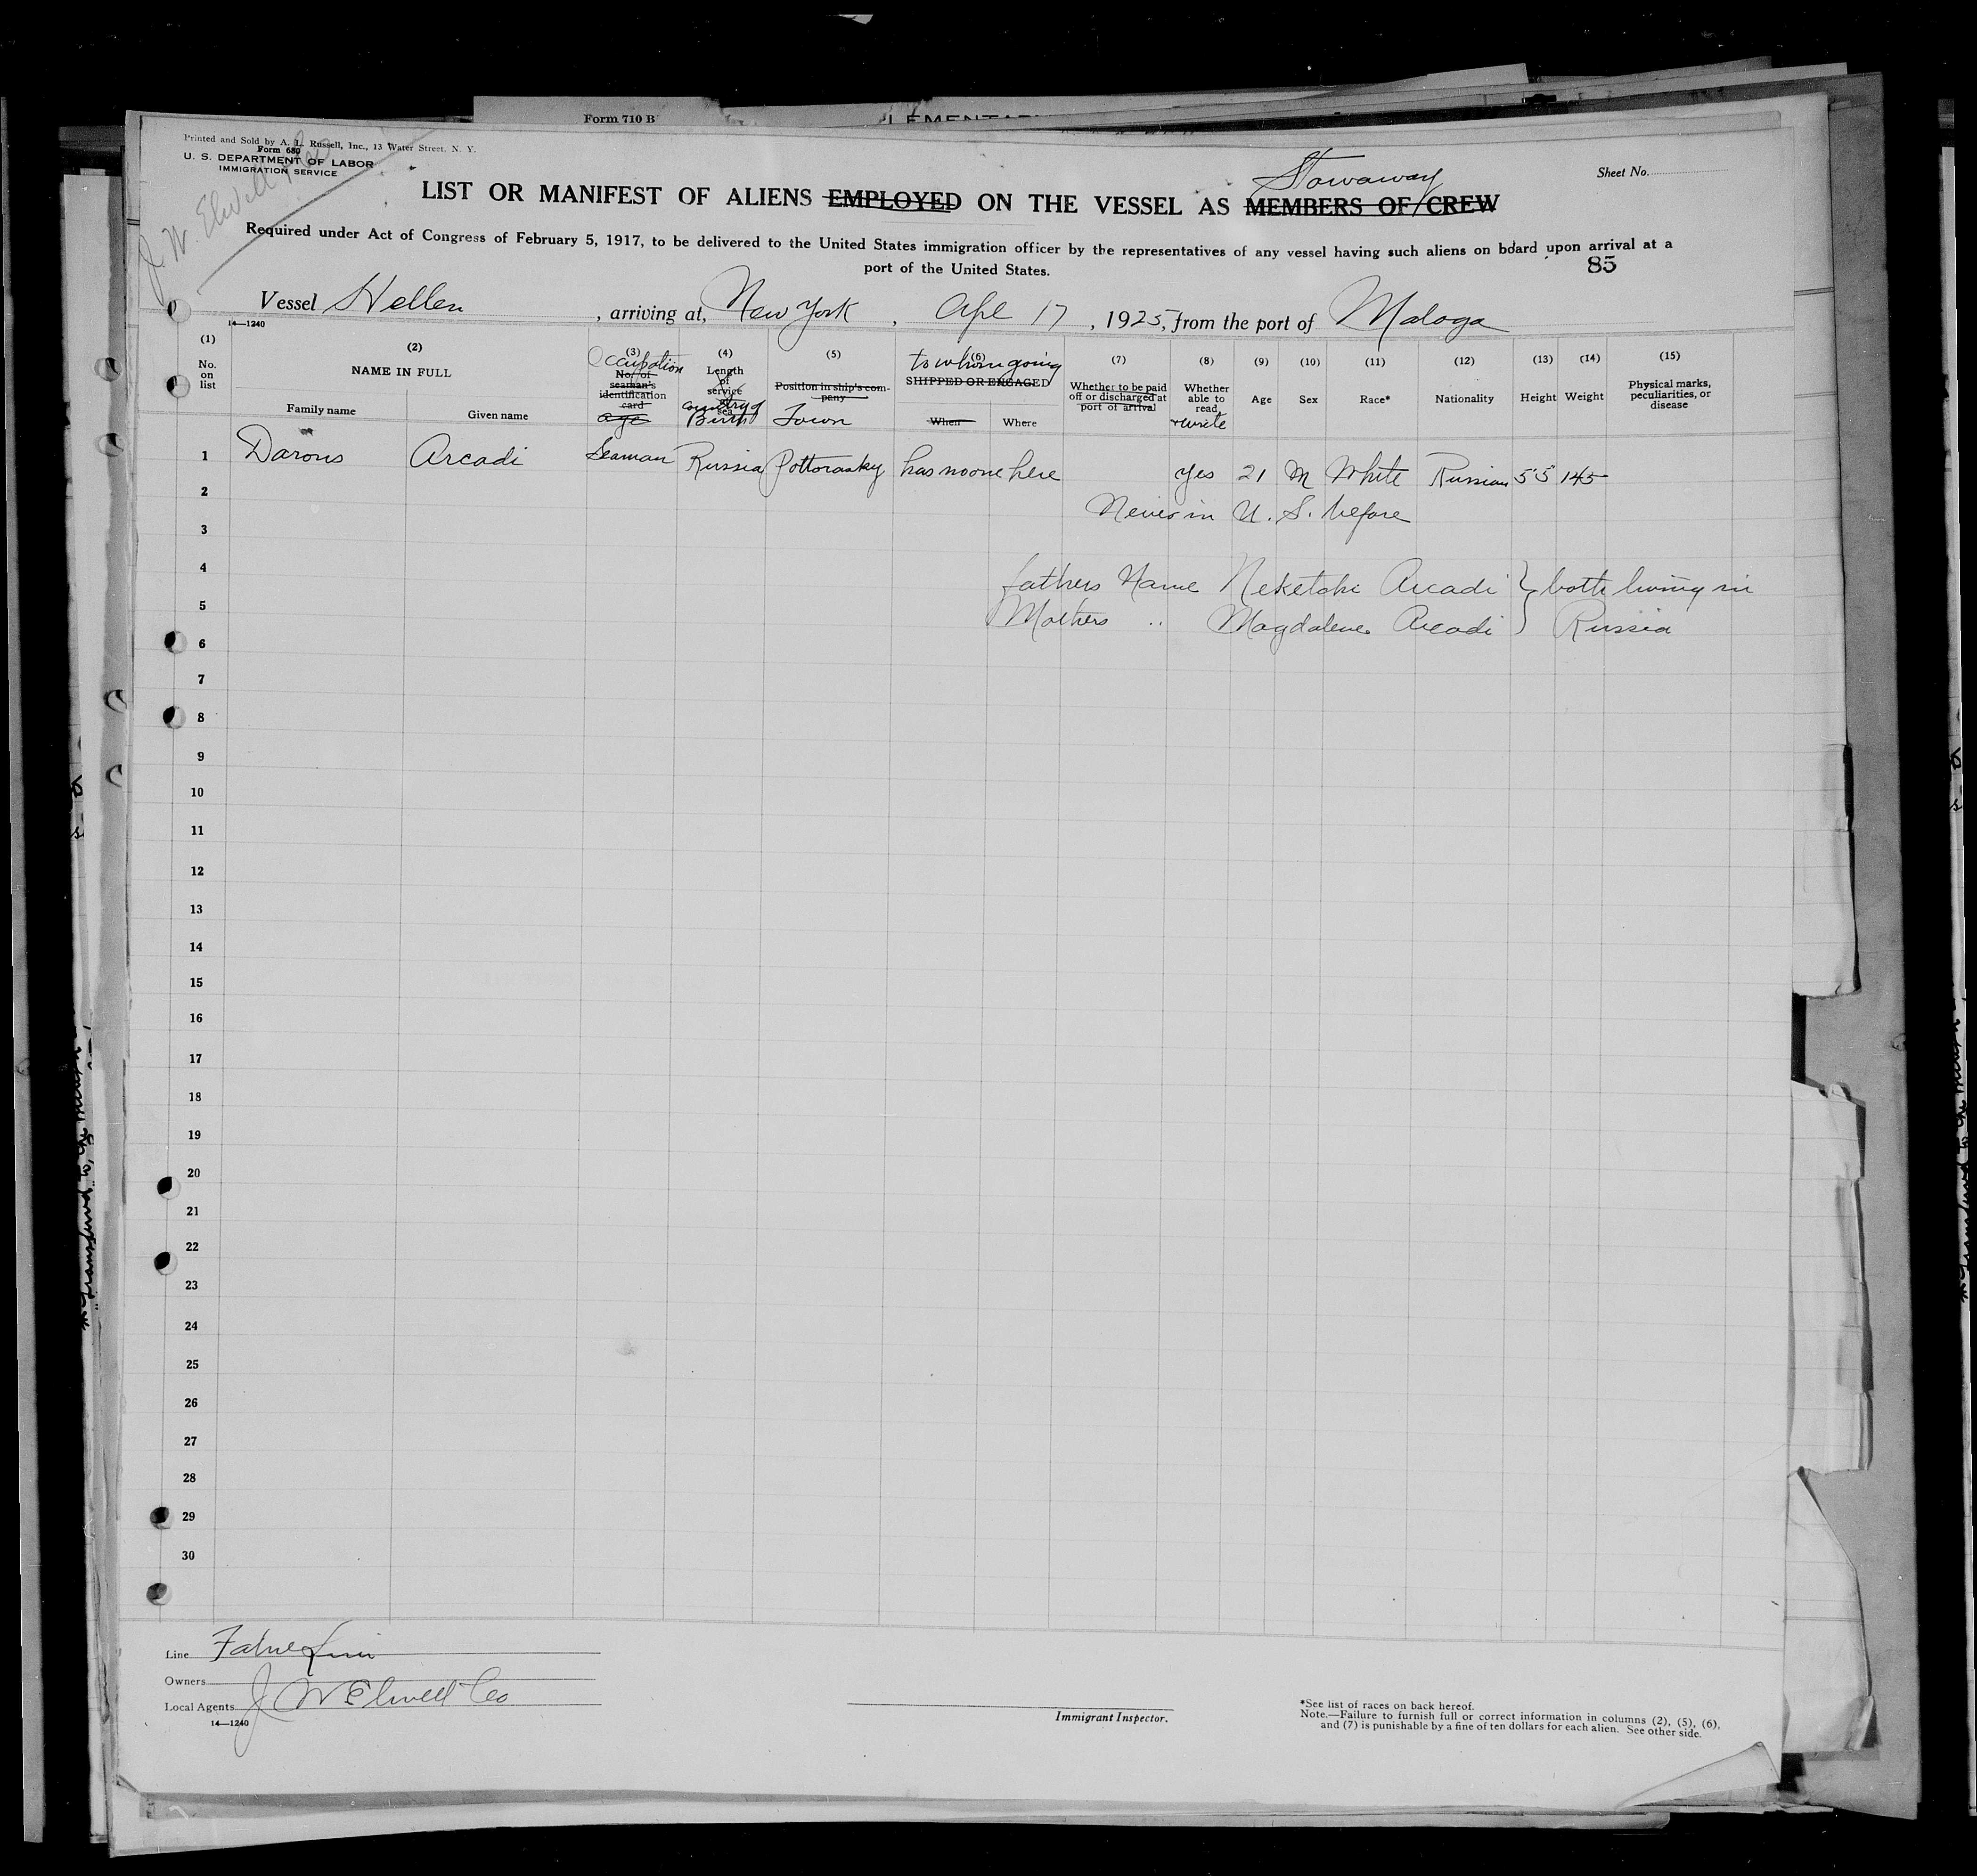 Form 710 B
Printed and Sold by A. L. Russell, Inc., 13 Water Street, N. Y.
Form 680
U. S. DEPARTMENT OF LABOR
IMMIGRATION SERVICE
J. W. Elwell & Co
Sheet No.
Stowaway
LIST OR MANIFEST OF ALIENS EMPLOYED ON THE VESSEL AS MEMBERS OF CREW
Required under Act of Congress of February 5, 1917, to be delivered to the United States immigration officer by the representatives of any vessel having such aliens on board upon arrival at a
port of the United States.
85
Vessel Hellen, arriving at, New York, Apl 17, 1925, from the port of Malaga
14—1240
(1) (2) (3) (4) (5) (6) (7) (8) (9) (10) (11) (12) (13) (14) (15)
No. on list
NAME IN FULL
Family name Given name
Occupation
No. of seaman's identification card
age
Length of service at sea
Country of Birth
Position in ship's company
Town
to whom going
SHIPPED OR ENGAGED
When Where
Whether to be paid off or discharged at port of arrival
Whether able to read
+ write
Age Sex Race* Nationality Height Weight
Physical marks, peculiarities, or disease
1 Darous Arcadi Seaman Russia Pottorasky has no one here yes 21 M White Russian 5'5" 145
2
Never in U. S. before
3
4
fathers Name Neketohi Arcadi } both living in
5
Mothers " Magdalene Arcadi } Russia
6
7
8
9
10
11
12
13
14
15
16
17
18
19
20
21
22
23
24
25
26
27
28
29
30
Line Fabre Line
Owners
Local Agents J W Elwell Co
14—1240
Immigrant Inspector.
*See list of races on back hereof.
Note.—Failure to furnish full or correct information in columns (2), (5), (6),
and (7) is punishable by a fine of ten dollars for each alien. See other side.